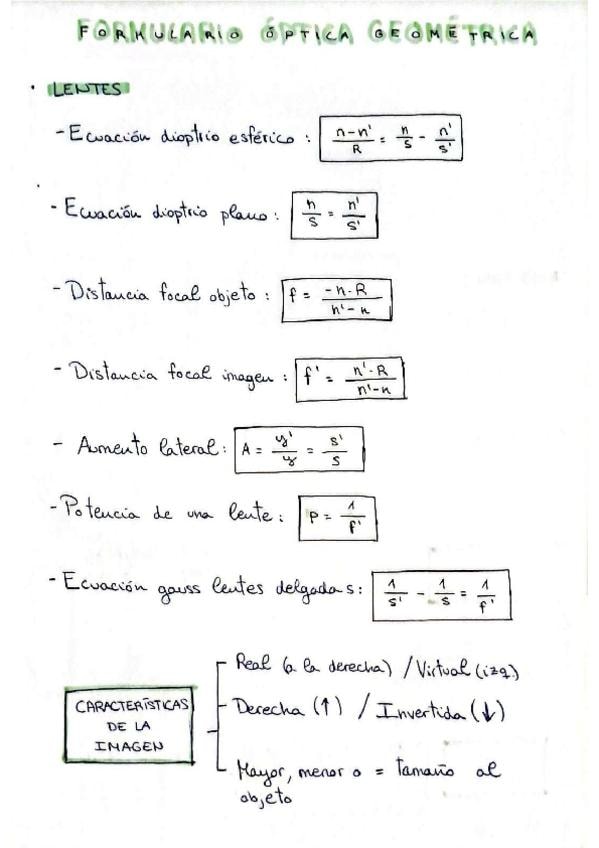 FORMULARIO ÓPTICA GEOMÉTRICA
· LENTES
- Ecuación dioptrio esférico : (n-n')/R = n/s - n'/s'
- Ecuación dioptrio plano : n/s = n'/s'
- Distancia focal objeto : f = (-n·R)/(n'-n)
- Distancia focal imagen : f' = (n'·R)/(n'-n)
- Aumento lateral : A = y'/y = s'/s
- Potencia de una lente : P = 1/f'
- Ecuación gauss lentes delgadas : 1/s' - 1/s = 1/f'
CARACTERÍSTICAS
DE LA
IMAGEN
- Real (a la derecha) / Virtual (izq.)
- Derecha (↑) / Invertida (↓)
- Mayor, menor o = tamaño al
objeto